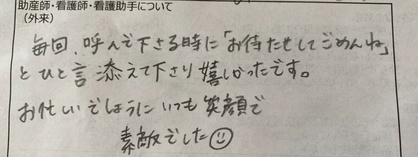 助産師・看護師・看護助手について
(外来)
毎回、呼んで下さる時に「お待たせしてごめんね」
とひと言添えて下さり嬉しかったです。
お忙しいでしょうにいつも笑顔で
素敵でした☺